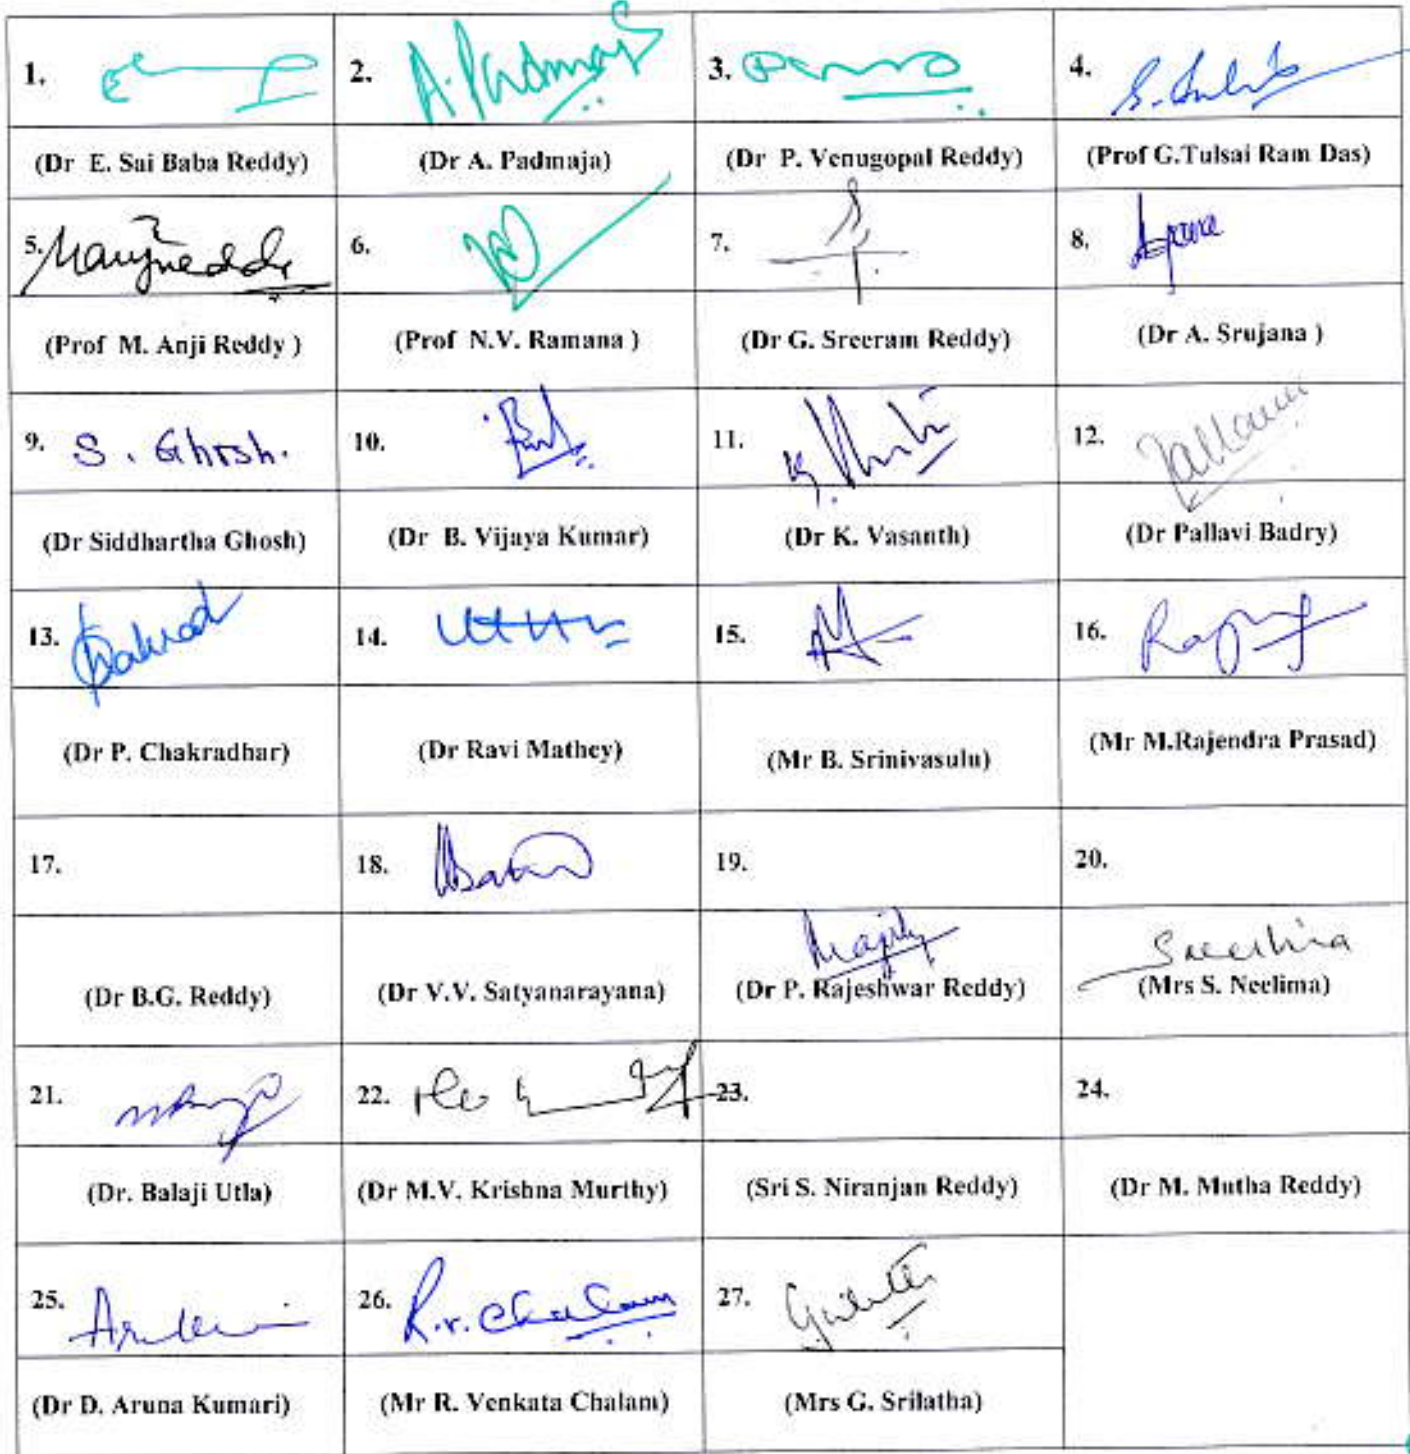 1. 2. A. Padmaja 3. 4.
(Dr E. Sai Baba Reddy) (Dr A. Padmaja) (Dr P. Venugopal Reddy) (Prof G.Tulsai Ram Das)
5. Manjireddy 6. 7. 8.
(Prof M. Anji Reddy ) (Prof N.V. Ramana ) (Dr G. Sreeram Reddy) (Dr A. Srujana )
9. S. Ghosh. 10. 11. 12. Pallavi
(Dr Siddhartha Ghosh) (Dr B. Vijaya Kumar) (Dr K. Vasanth) (Dr Pallavi Badry)
13. 14. 15. 16.
(Dr P. Chakradhar) (Dr Ravi Mathey) (Mr B. Srinivasulu) (Mr M.Rajendra Prasad)
17. 18. 19. 20.
(Dr B.G. Reddy) (Dr V.V. Satyanarayana) (Dr P. Rajeshwar Reddy) (Mrs S. Neelima)
21. 22. 23. 24.
(Dr. Balaji Utla) (Dr M.V. Krishna Murthy) (Sri S. Niranjan Reddy) (Dr M. Mutha Reddy)
25. 26. R.V. Chalam 27.
(Dr D. Aruna Kumari) (Mr R. Venkata Chalam) (Mrs G. Srilatha)